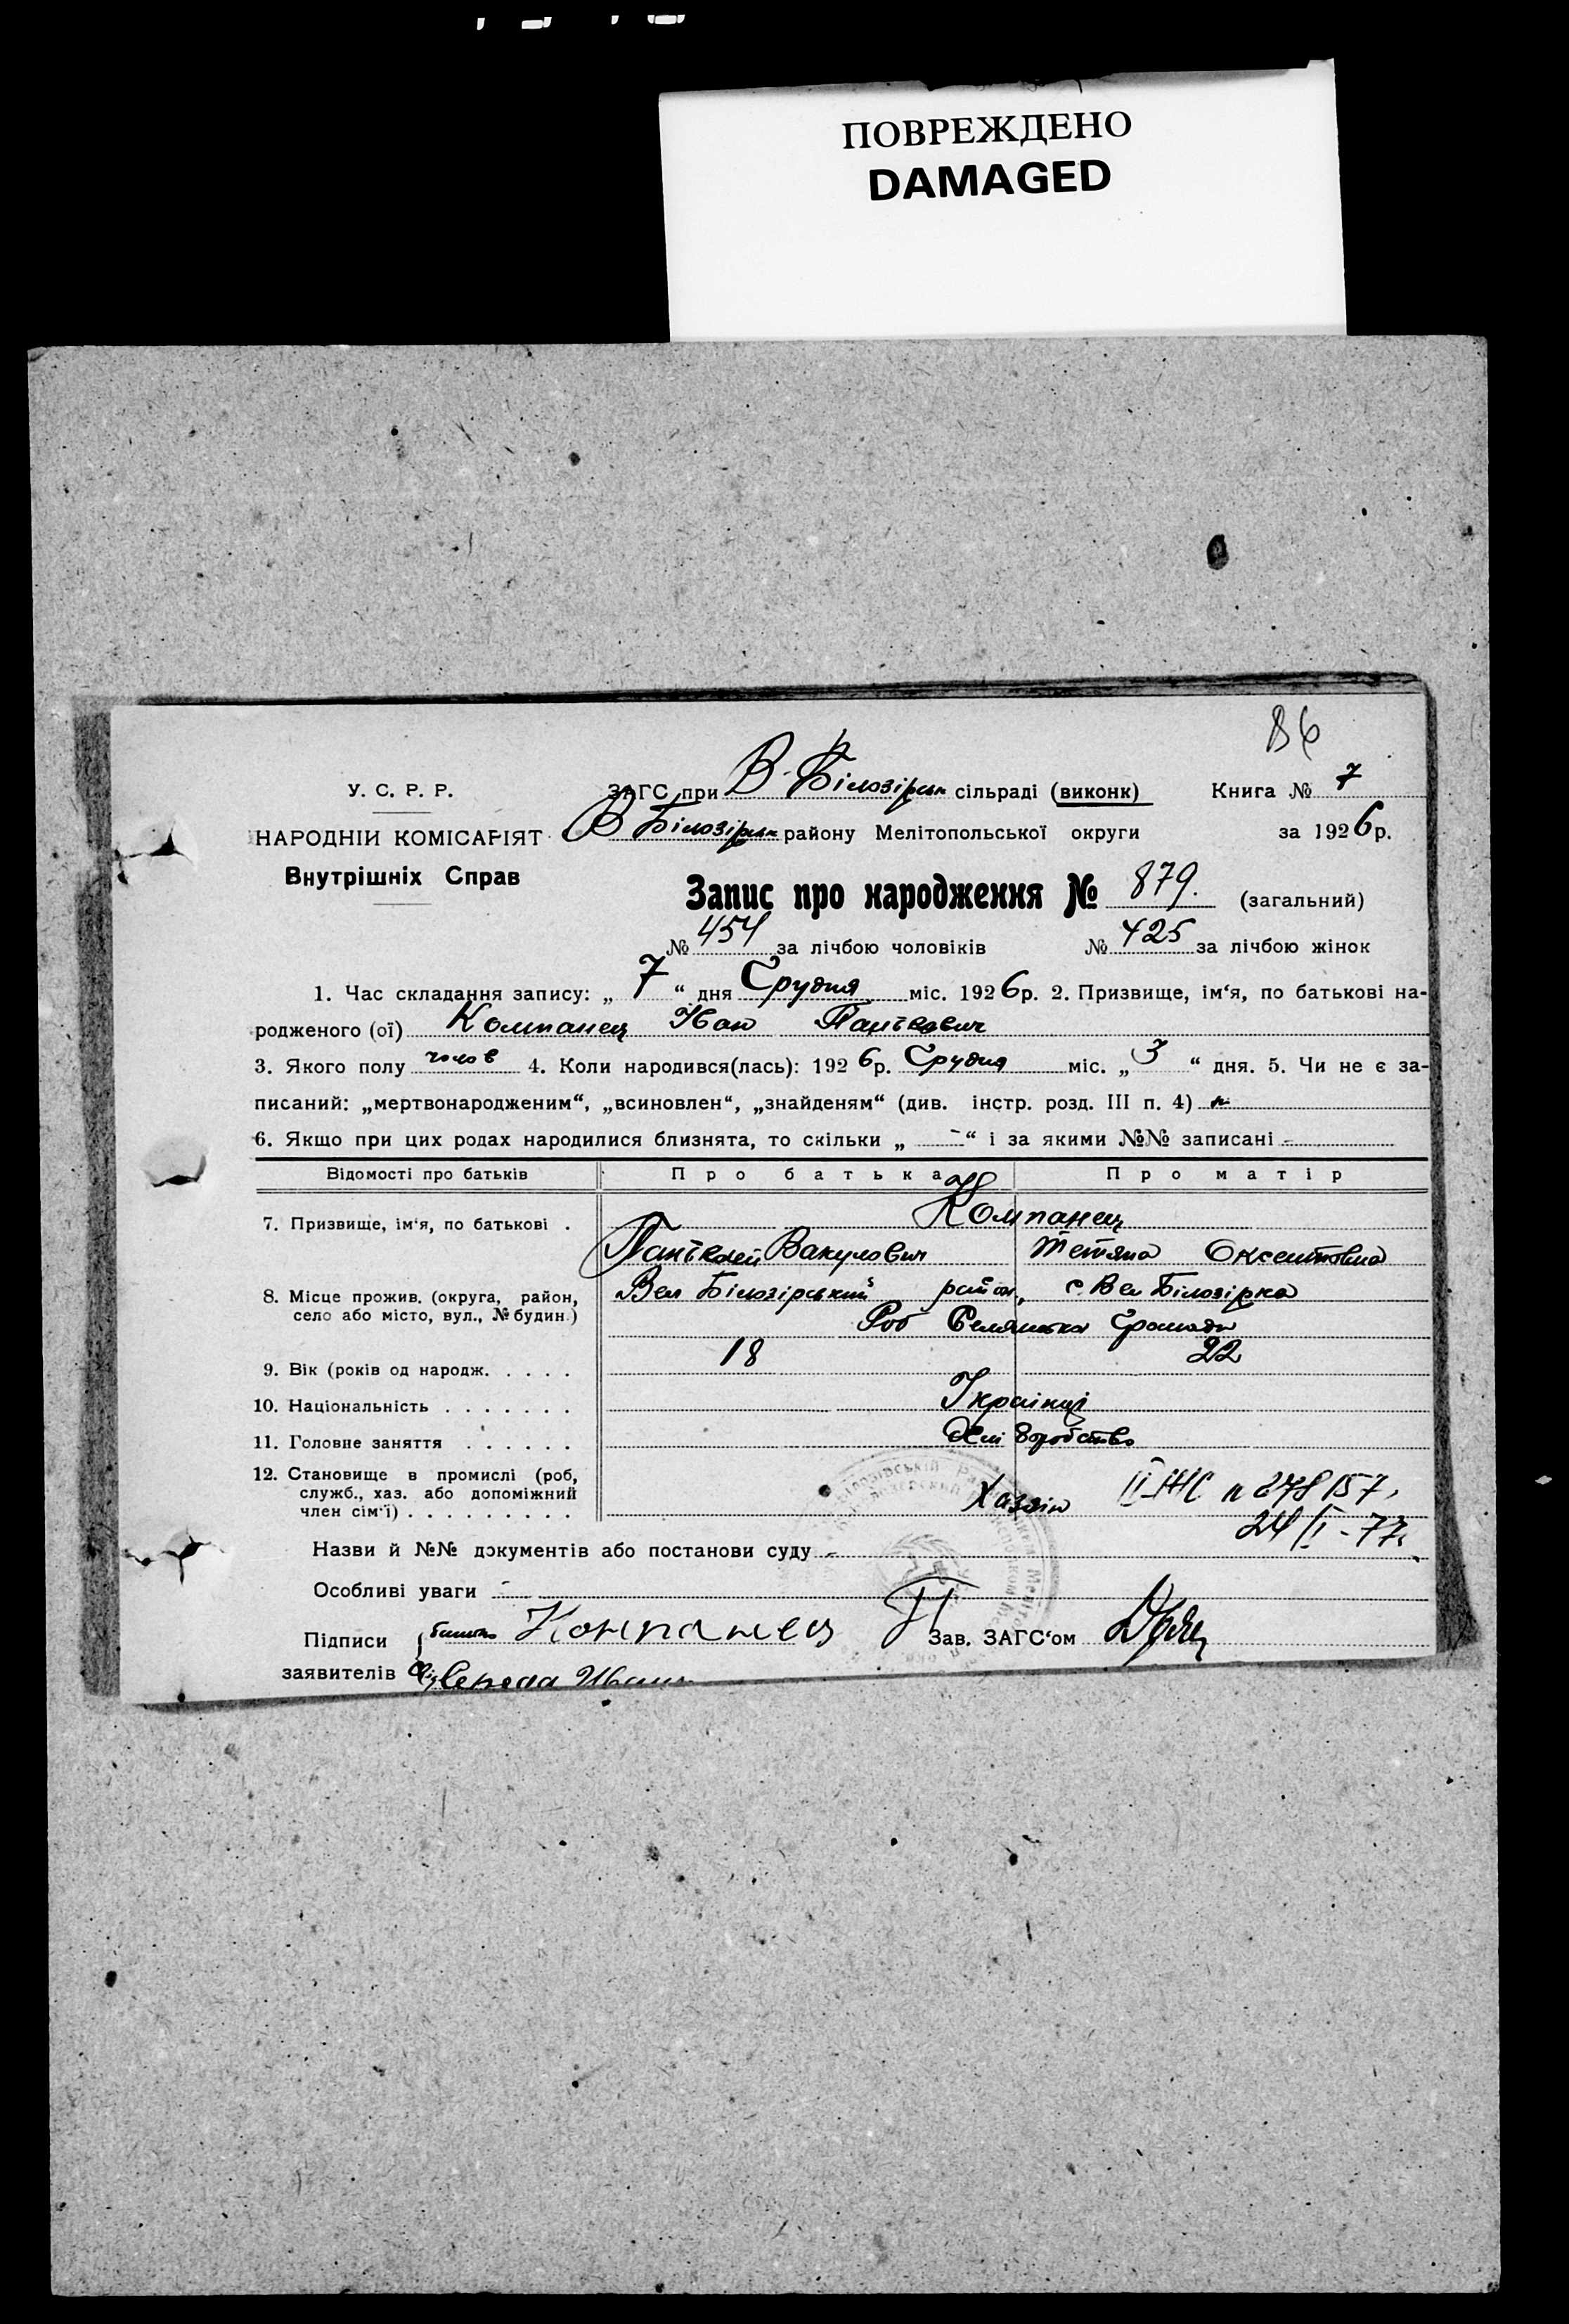 ПОВРЕЖДЕНО
DAMAGED
86
У. С. Р. Р.
НАРОДНІЙ КОМІСАРІЯТ
Внутрішніх Справ
ЗАГС при В-Білозірськ сільраді (виконк) Книга № 7
В Білозірськ району Мелітопольської округи за 1926р.
Запис про народження № 879. (загальний)
№ 454 за лічбою чоловіків № 425 за лічбою жінок
1. Час складання запису: „ 7 “ дня Грудня міс. 1926р. 2. Призвище, ім‘я, по батькові на-
родженого (ої) Компанец Іван Пантелович
3. Якого полу чолов 4. Коли народився(лась): 1926р. Грудня міс. „ 3 “ дня. 5. Чи не є за-
писаний: „мертвонародженим“, „всиновлен“, „знайденям“ (див. інстр. розд. III п. 4)
6. Якщо при цих родах народилися близнята, то скільки „ - “ і за якими №№ записані -
Відомості про батьків Про батька Про матір
7. Призвище, ім‘я, по батькові . Компанец
Пантелей Вакулович Тетяна Оксентовна
8. Місце прожив. (округа, район, село або місто, вул., № будин.) Вел Білозірський район, с. Вел Білозірка
Роб Селянська Громада
9. Вік (років од народж. . . . . 18 22
10. Національність . . . . . . . Українці
11. Головне заняття . . . . . . Хліборобство
12. Становище в промислі (роб, служб., хаз. або допоміжний член сім‘ї) . . . . . . . . . Хазяін
II-ЖС n 278157,
24/II-77.
Назви й №№ документів або постанови суду -
Особливі уваги -
Підписи заявителів батько Компанец П
Середа Иван
Зав. ЗАГС‘ом